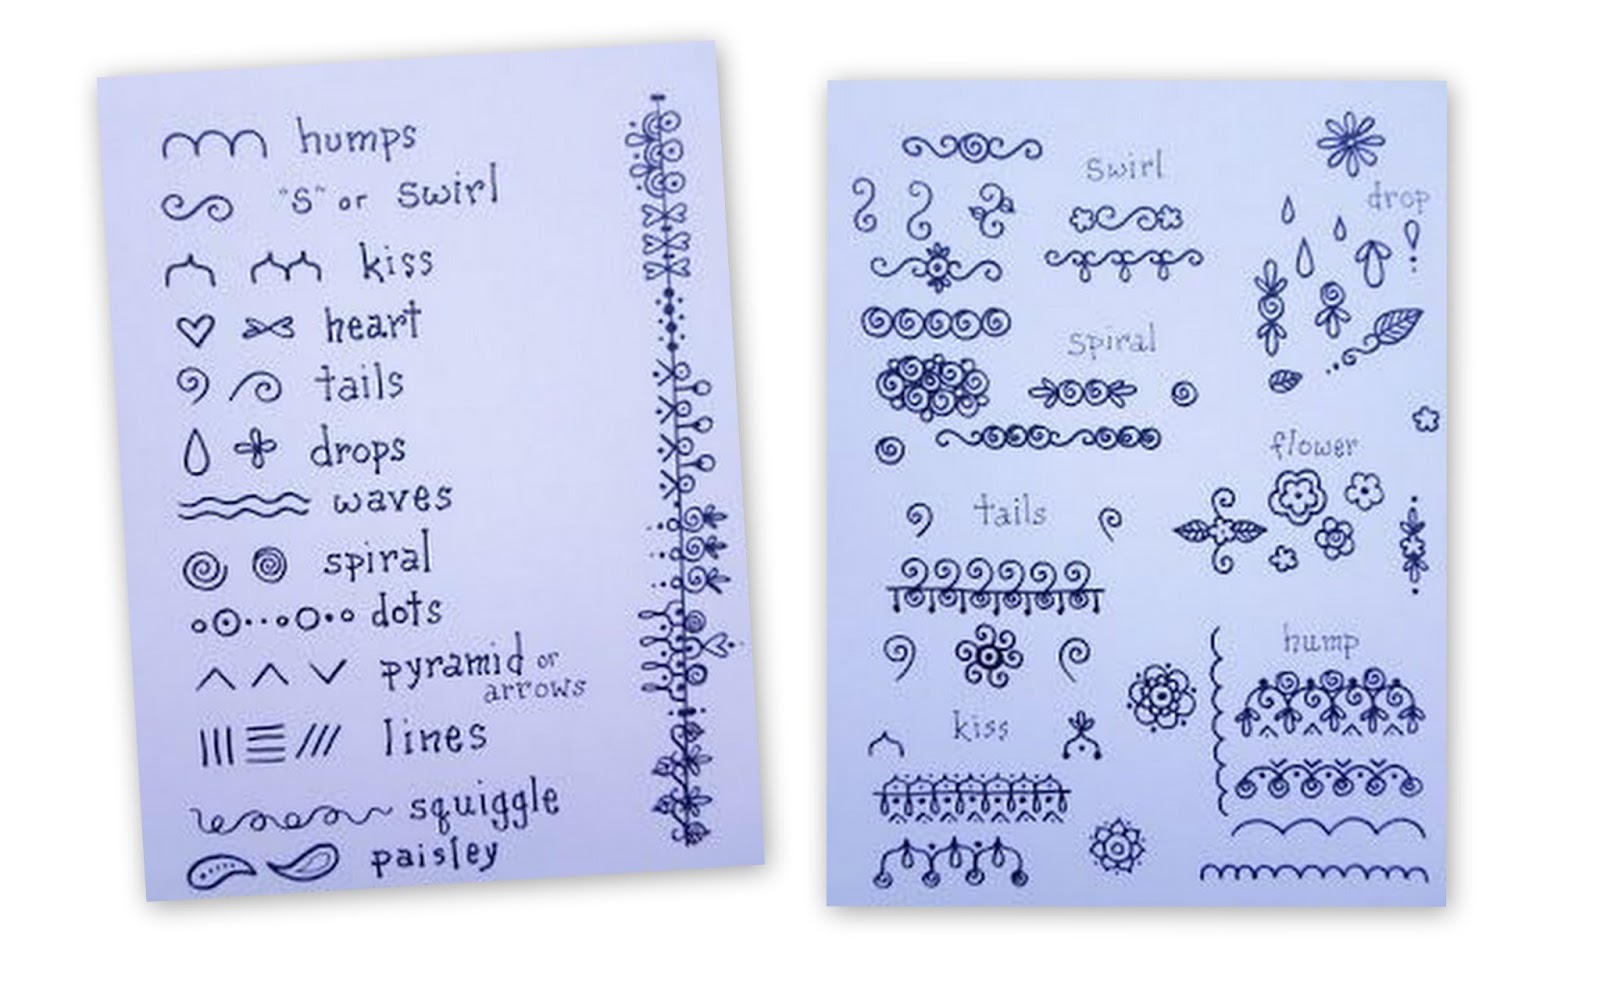 humps
"S" or swirl
kiss
heart
tails
drops
waves
spiral
dots
pyramid or
arrows
lines
squiggle
paisley
swirl
drop
spiral
flower
tails
hump
kiss